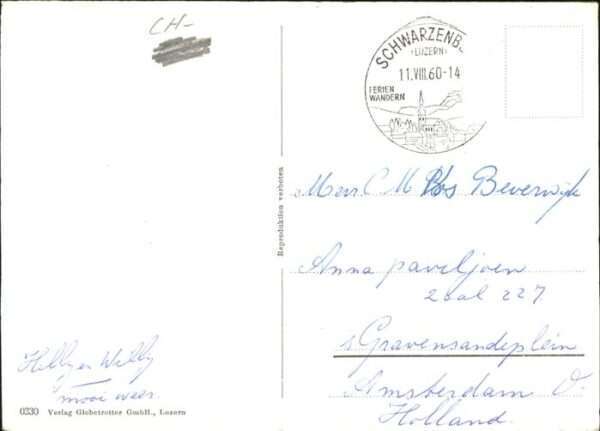 CH-
SCHWARZENB
(LUZERN)
11.VIII.60-14
FERIEN
WANDERN
Reproduktion verboten
Mevr C M Vos Beverwijk
Anna paviljoen
zaal 227
s Gravensandeplein
Amsterdam O.
Holland.
Hilly en Willy
mooi weer.
0330 Verlag Globetrotter GmbH., Luzern